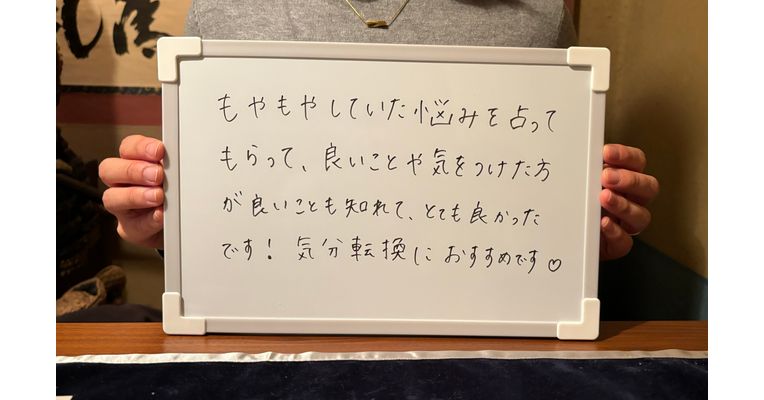 もやもやしていた悩みを占って
もらって、良いことや気をつけた方
が良いことも知れて、とても良かった
です！気分転換におすすめです♡